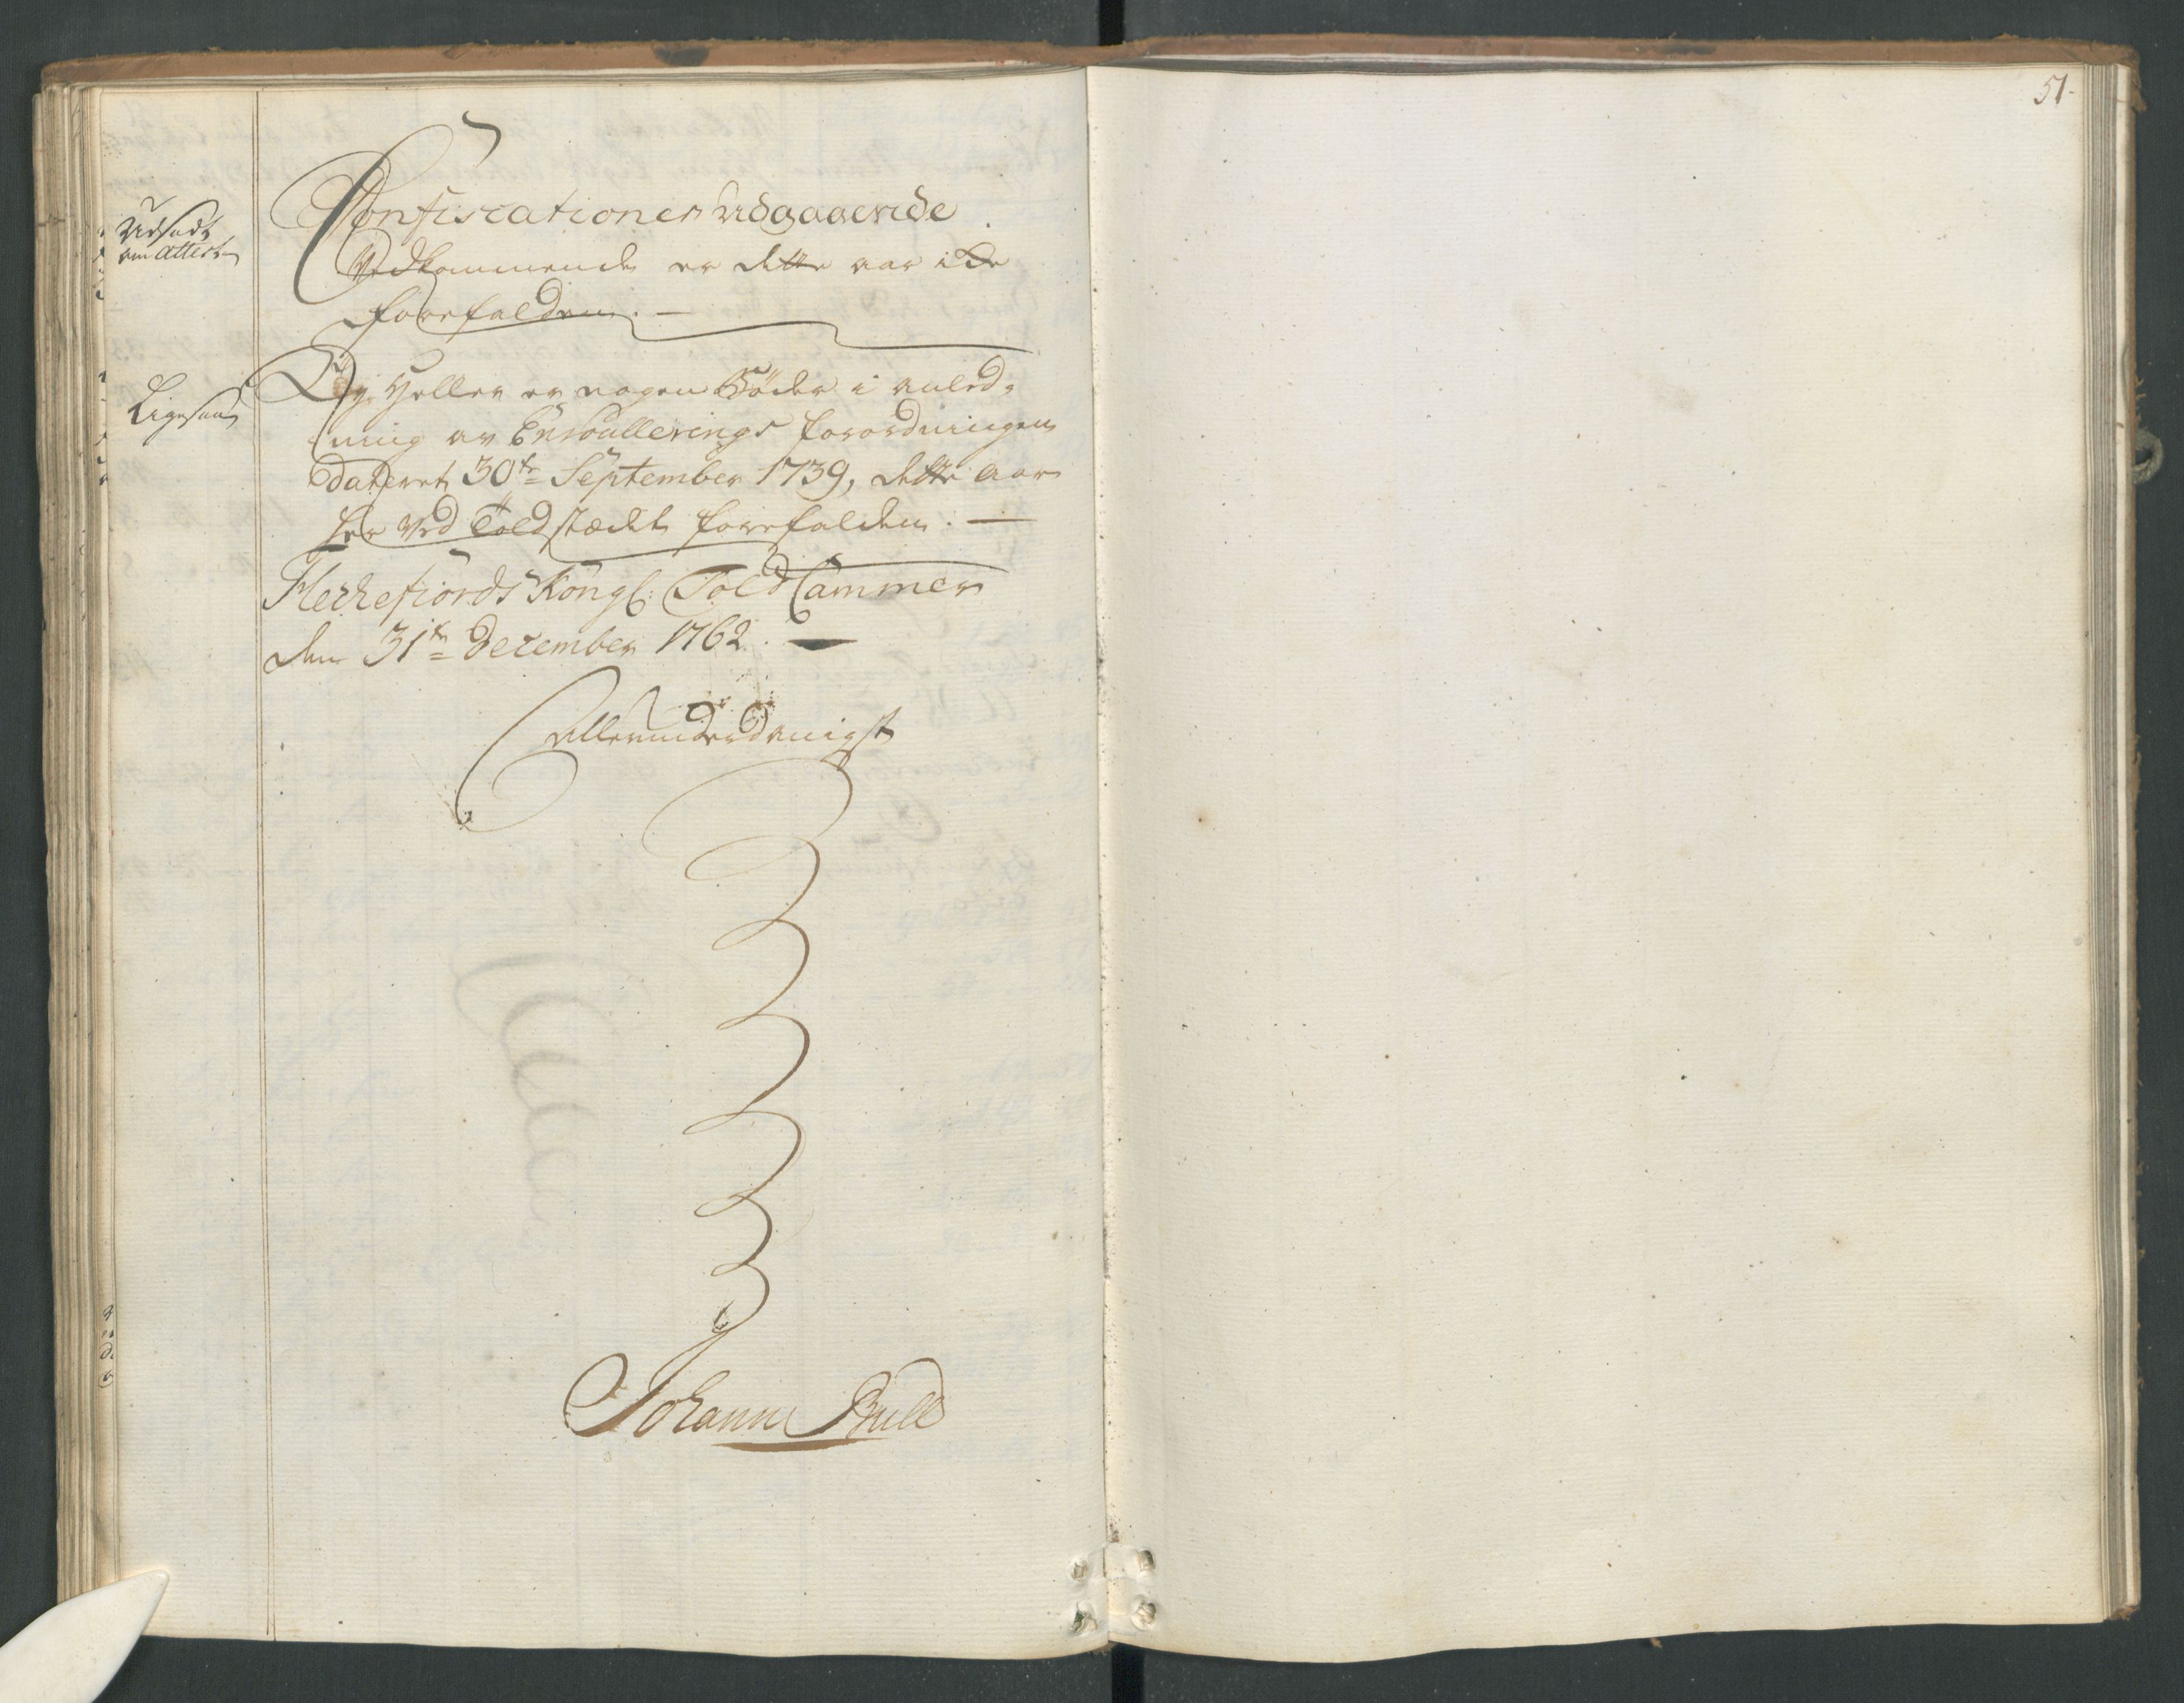 51.
Udsadt
om attest
Confiscationer udgaaende
Vedkommende er dette aar icke
forefalden. —
Ey heller er nogen Bøder i anled-
ning av Enroullerings forordningen
dateret 30te September 1739, dette aar
her ved Toldstædet forefalden. —
Ligesaa
Fleckefiords Kongl: Told Cammer
den 31te December 1762. —
allerunderdanigst
Johann Bull